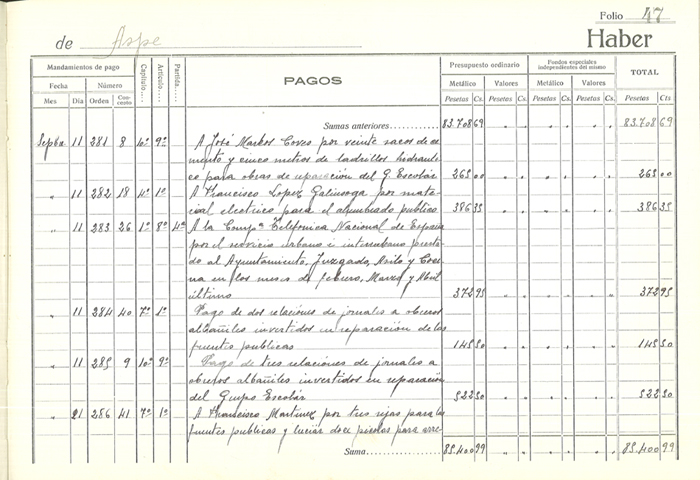 Folio 47
de Aspe
Haber
Mandamientos de pago
Fecha Número
Mes Día Orden Concepto
Capítulo.... Artículo.... Partida....
PAGOS
Presupuesto ordinario
Metálico Valores
Pesetas Cs. Pesetas Cs.
Fondos especiales independientes del mismo
Metálico Valores
Pesetas Cs. Pesetas Cs.
TOTAL
Pesetas Cts
Sumas anteriores 83.708 69 83.708 69
Septbe 11 281 8 10º 9º A José Markos Coves por veinte sacos de ce
mento y cinco metros de ladrillos hidrauli
co para obras de reparación del G. Escolár 263 00 263 00
" 11 282 18 4º 1º A Francisco Lopez Galiusoga por mate
rial electrico para el alumbrado publico 386 35 386 35
" 11 283 26 1º 8º 4º A la Compª Telefonica Nacional de España
por el servicio urbano é interurbano presta
do al Ayuntamiento, Juzgado, Asilo y
en los meses de febrero, Marzo y Abril
último 372 95 372 95
" 11 284 40 7º 1º Pago de dos relaciones de jornales a obreros
albañiles invertidos en reparación de las
fuentes publicas 145 50 145 50
" 11 285 9 10º 9º Pago de tres relaciones de jornales a
obreros albañiles invertidos en reparación
del Grupo Escolár 522 50 522 50
" 21 286 41 7º 1º A Francisco Martinez por tres rejas para las
fuentes publicas y luciar doce picolas para arre
Suma 85.400 99 85.400 99